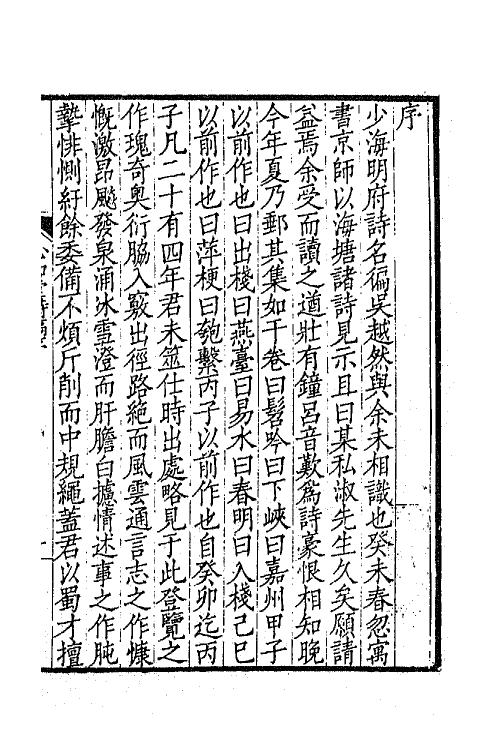 序
少海明府詩名徧吳越然與余未相識也癸未春忽寓
書京師以海塘諸詩見示且曰某私淑先生久矣願請
益焉余受而讀之遒壯有鐘呂音歎爲詩豪恨相知晚
今年夏乃郵其集如干卷曰髫吟曰下峽曰嘉州甲子
以前作也曰出棧曰燕臺曰易水曰春明曰入棧己巳
以前作也曰萍梗曰匏繫丙子以前作也自癸卯迄丙
子凡二十有四年君未筮仕時出處略見于此登覽之
作瑰奇奥衍脇入竅出徑路絶而風雲通言志之作慷
慨激昂飈發泉涌冰雪澄而肝膽白攄情述事之作肫
摯悱惻紆餘委備不煩斤削而中規繩蓋君以蜀才擅